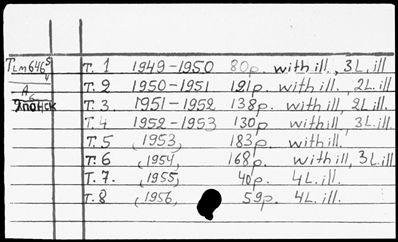 TLm646 5/v
A 6
Японск
T. 1 1949-1950 80p. with ill., 3L. ill
T. 2 1950-1951 121p. with ill., 2L. ill.
T. 3. 1951-1952 138p. with ill., 2L. ill
T. 4 1952-1953 130p with ill, 3L. ill.
T. 5 (1953) 183p. with ill.
T. 6 (1954) 168p. with ill, 3L. ill.
T. 7. (1955) 40p. 4L. ill.
T. 8 (1956) 59p. 4L. ill.